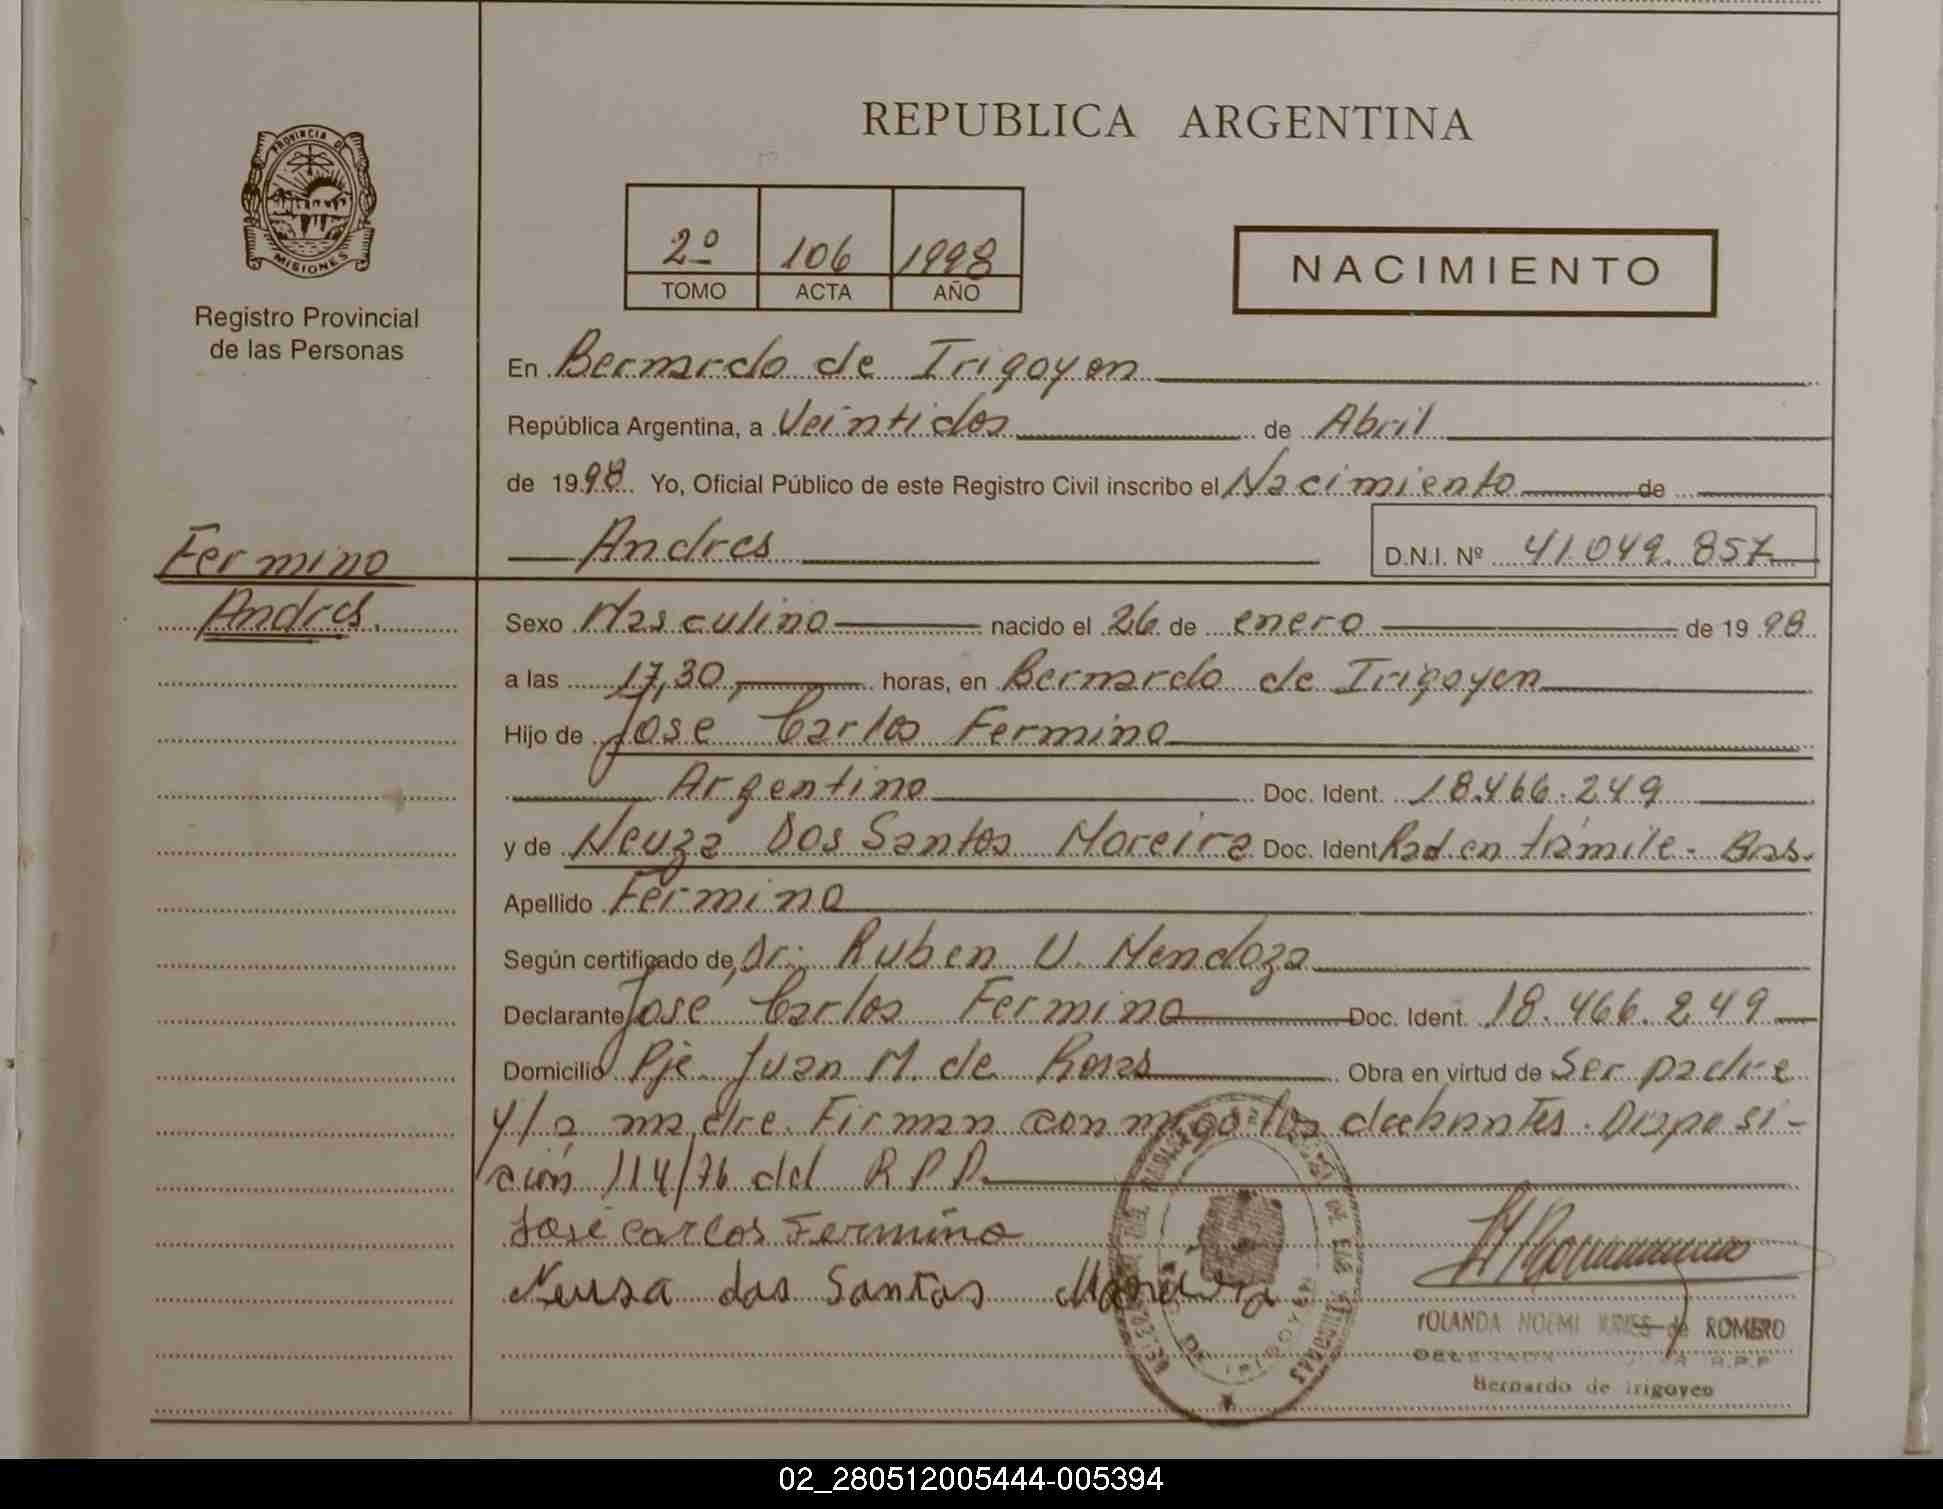 REPUBLICA ARGENTINA
PROVINCIA DE
MISIONES
Registro Provincial
de las Personas
2º 106 1998
TOMO ACTA AÑO
NACIMIENTO
En Bernardo de Irigoyen
República Argentina, a Veintidos de Abril
de 1998 Yo, Oficial Público de este Registro Civil inscribo el Nacimiento de
Fermino
Andres
Andres D.N.I. Nº 41.049.857
Sexo Masculino nacido el 26 de enero de 1998
a las 17,30 horas, en Bernardo de Irigoyen
Hijo de Jose Carlos Fermino
Argentino Doc. Ident. 18.466.249
y de Neuza Dos Santos Moreira Doc. Ident Rad en trámite - Bras.
Apellido Fermino
Según certificado de Dr: Ruben U. Mendoza
Declarante Jose Carlos Fermino Doc. Ident. 18.466.249
Domicilio Pje. Juan M. de Rosas Obra en virtud de Ser padre
y la madre. Firman conmigo los Disposi-
ción 114/76 del R.P.P.
José Carlos Fermino
Neusa dos Santos Moreira
DE IRIGOYEN
YOLANDA NOEMI de ROMERO
R.P.P
Bernardo de Irigoyen
02_280512005444-005394